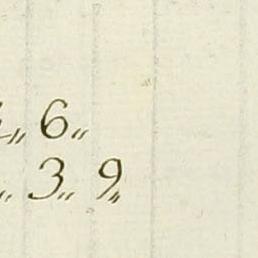 6„
„ 3„ 9„